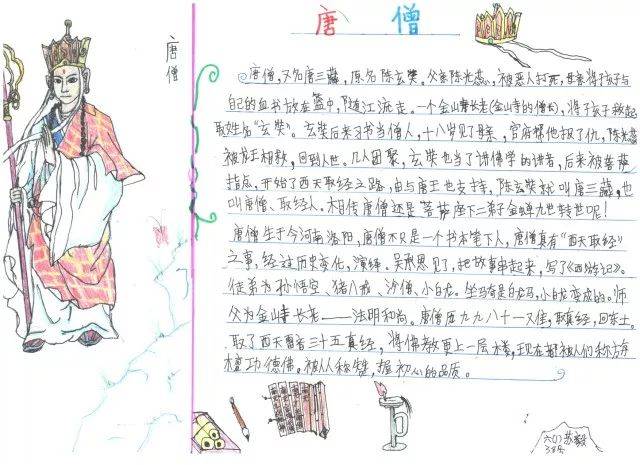 唐僧
唐僧
唐僧,又名唐三藏,原名陈玄奘。父亲陈光蕊,被恶人打死,母亲将孩子与
自己的血书放在篮中,随江流走。一个金山寺长老(金山寺的僧长),将孩子救起
取姓名"玄奘"。玄奘后来习书当僧人,十八岁见了母亲,官府帮他报了仇,陈光蕊
被龙王相救,回到人世。几人团聚,玄奘也当了讲佛学的讲者,后来被菩萨
指点,开始了西天取经之路,由与唐王也支持,陈玄奘就叫唐三藏,也
叫唐僧、取经人。相传唐僧还是菩萨座下二弟子金蝉九世转世呢!
唐僧生于今河南洛阳,唐僧不只是一个书本笔下人,唐僧真有"西天取经"
之事,经过历史变化,演绎。吴承恩见了,把故事串起来,写了《西游记》。
徒弟为孙悟空、猪八戒、沙僧、小白龙。坐马奇是白龙马,小白龙变成的。师
父为金山寺长老——法明和尚。唐僧历九九八十一又难,取真经,回东土。
取了西天 三十五真经,将佛教更上一层楼,现在都被人们称
檀功德佛。被人人称赞,握初心的品质。
六(1)苏毅
38号